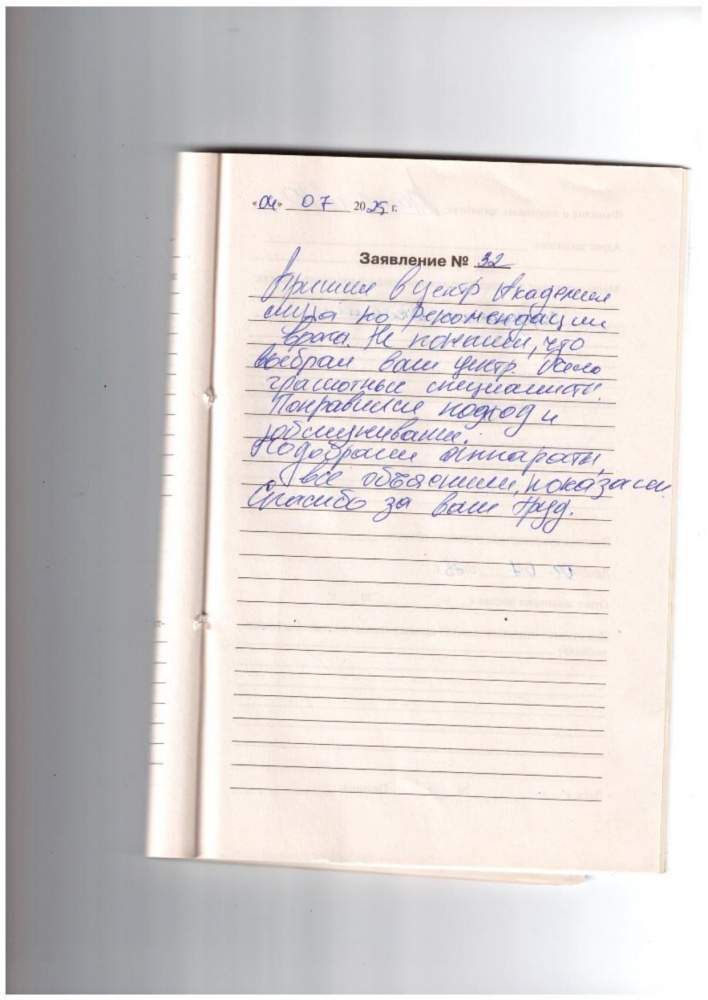 «04» 07 2025 г.
Заявление № 32
Пришли в центр Академия
слуха по рекомендации
врача. Не пожалели, что
выбрали ваш центр.
грамотные специалисты.
Понравился подход и
обслуживание.
Подобрали аппараты,
все объяснили, показали.
Спасибо за ваш труд.